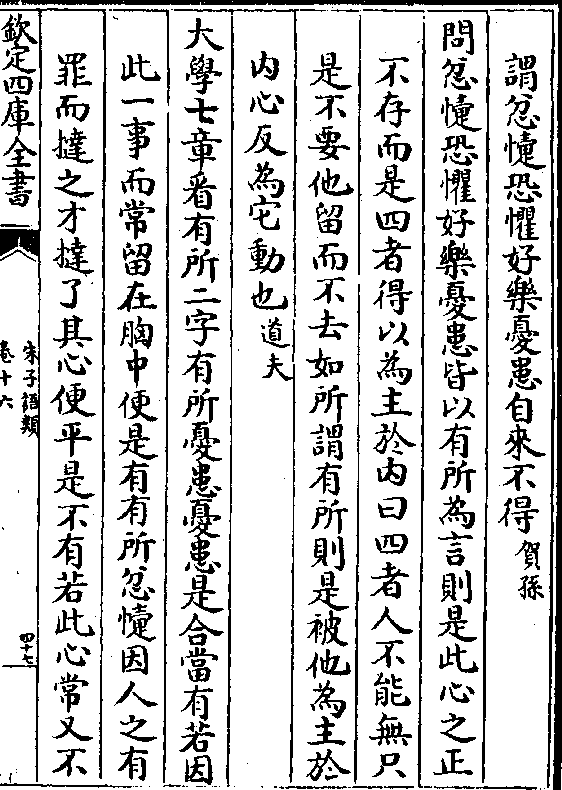 謂忿懥恐懼好樂憂患自來不得賀孫
問忿懥恐懼好樂憂患皆以有所為言則是此心之正
不存而是四者得以為主於内曰四者人不能無只
是不要他留而不去如所謂有所則是被他為主於
内心反為它動也道夫
大學七章看有所二字有所憂患憂患是合當有若因
此一事而常留在胸中便是有有所忿懥因人之有
罪而撻之才撻了其心便平是不有若此心常又不
欽定四庫全書
朱子語類
卷十六
四十七